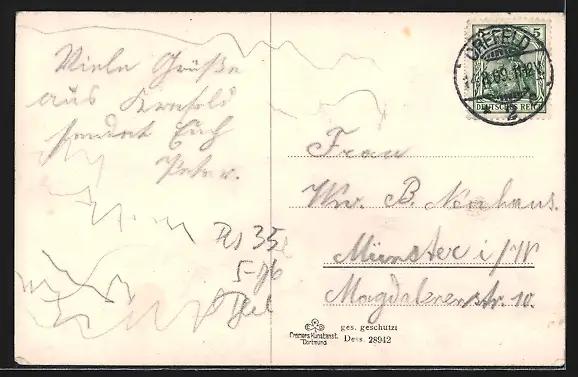 Viele Grüße
aus Krefeld
sendet Euch
Peter.
35
5-
CREFELD
2
5
DEUTSCHES REICH
Frau
Ww. B. Neuhaus.
Münster i/W
Magdalenenstr. 10.
Cramers Kunstanst.
Dortmund
ges. geschützt
Dess. 28942